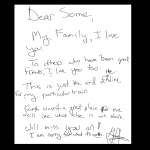 Dear Some,
My Family, I love
you
To others who have been great
friends, I love you too.
This is just the end of the line
for my particular train
Earth was a great place for me
We'll see what else is out there
Will miss you all!
I am sorry